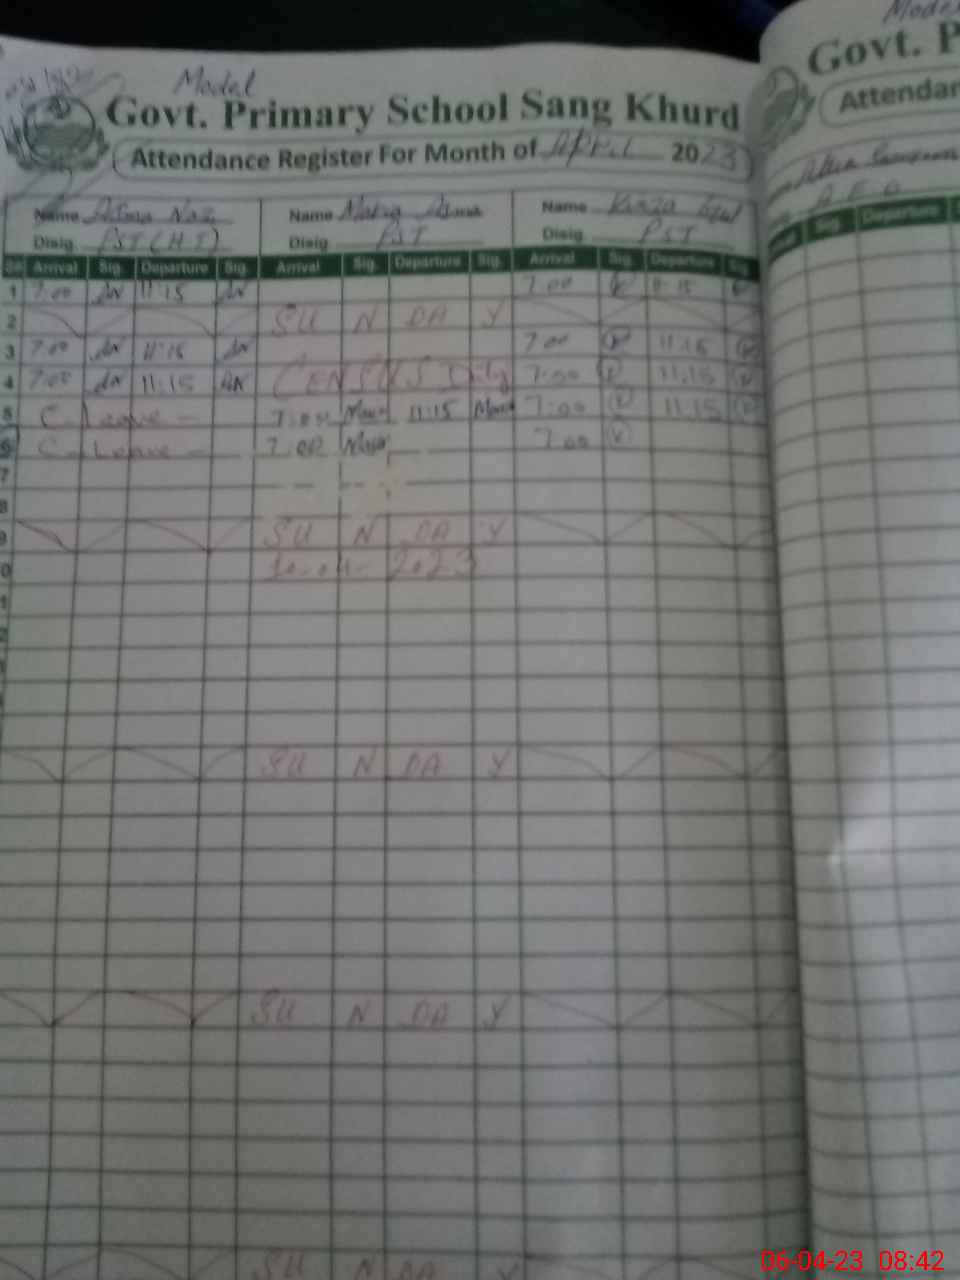 Model
Govt. Primary School Sang Khurd
Attendance Register For Month of April 2023
Name Asma Naz Name Name Kinza
Disig. PST (H.T) Disig. PST Disig. PST
Arrival Sig. Departure Sig. Arrival Sig. Departure Sig. Arrival Sig. Departure Sig.
1 7:00 AN 11:15 AN 7:00 11:15
2 SU N DA Y
3 7:00 AN 11:15 AN 7:00 11:15
4 7:00 AN 11:15 AN CENSUS Duty 7:00 11:15
5 C-Leave - 7:00 11:15 7:00 11:15
6 C-Leave - 7:00 7:00
7
8
9 SU N DA Y
0 10-04-2023
1
2
SU N DA Y
SU N DA Y
SU N DA Y
Model
Govt. P
Attendan
A.E.O
Sig. Departure
06-04-23 08:42